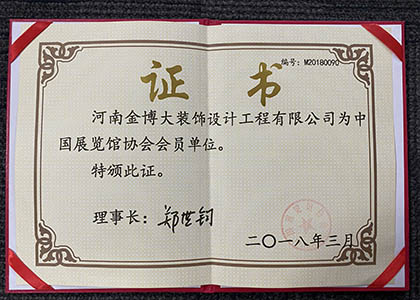 编号: M20180090
证书
河南金博大装饰设计工程有限公司为中
国展览馆协会会员单位。
特颁此证。
理事长: 郑世钧
二〇一八年三月